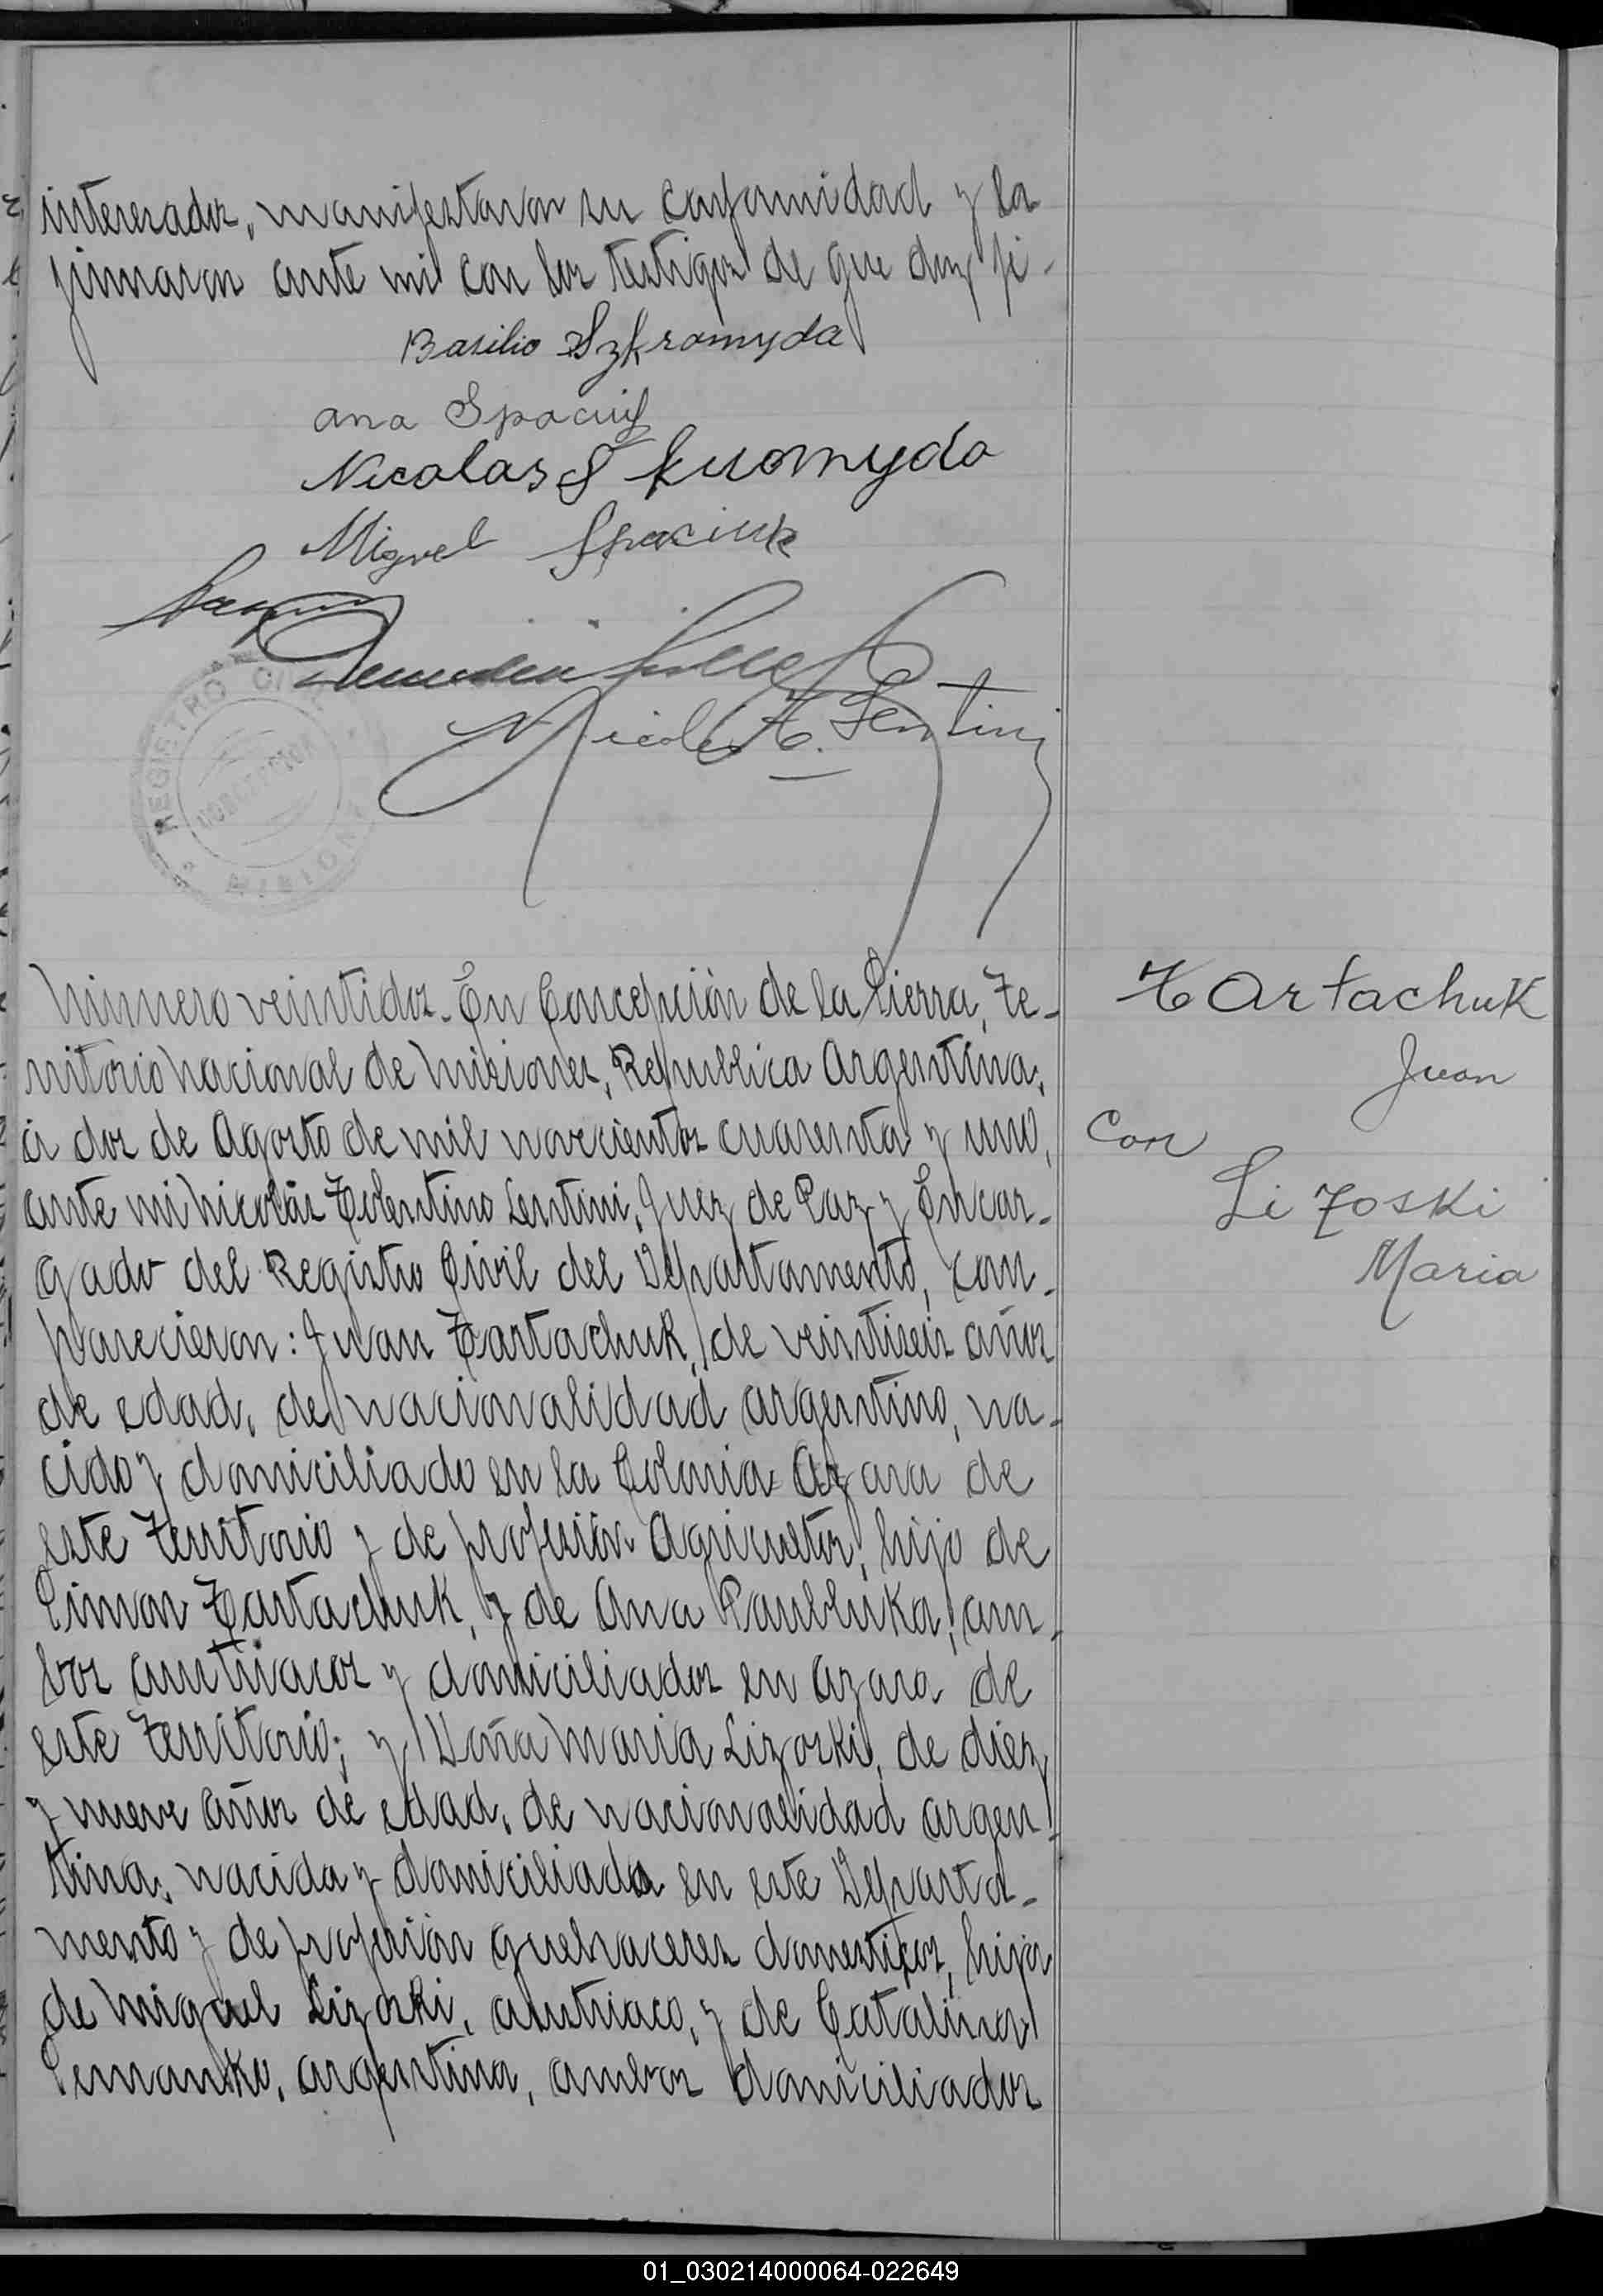 interesados, manifestaron su conformidad y la
firmaron ante mi con los testigos de que doy fé-
Basilio Szkromyda
ana Spaciuk
Nicolas Skromyda
Miguel Spaciuk
Nicolas T. Lentini
REGISTRO CIVIL
MISIONES
Número veintidos.- En Concepción de la Sierra, Te-
rritorio Nacional de Misiones, República Argentina,
á dos de Agosto de mil novecientos cuarenta y uno,
ante mi Nicolás Tolentino Lentini, Juez de Paz y Encar-
gado del Registro Civil del Departamento, com-
parecieron: Juan Tartachuk, de veintiseis años
de edad, de nacionalidad argentino, na-
cido y domiciliado en la Colonia Azara de
este Territorio y de profesión Agricultor, hijo de
Simon Tartachuk, y de Ana Paulluka, am-
bos austriacos y domiciliados en Azara de
este Territorio; y Doña Maria Lizoski, de diez
y nueve años de edad, de nacionalidad argen-
tina, nacida y domiciliada en este Departa-
mento y de profesión quehaceres domesticos, hija
de Miguel Lizoski, austriaco, y de Catalina
Semanko, argentina, ambos domiciliados
TArtachuK
Juan
Con
LizosKi
Maria
01_030214000064-022649